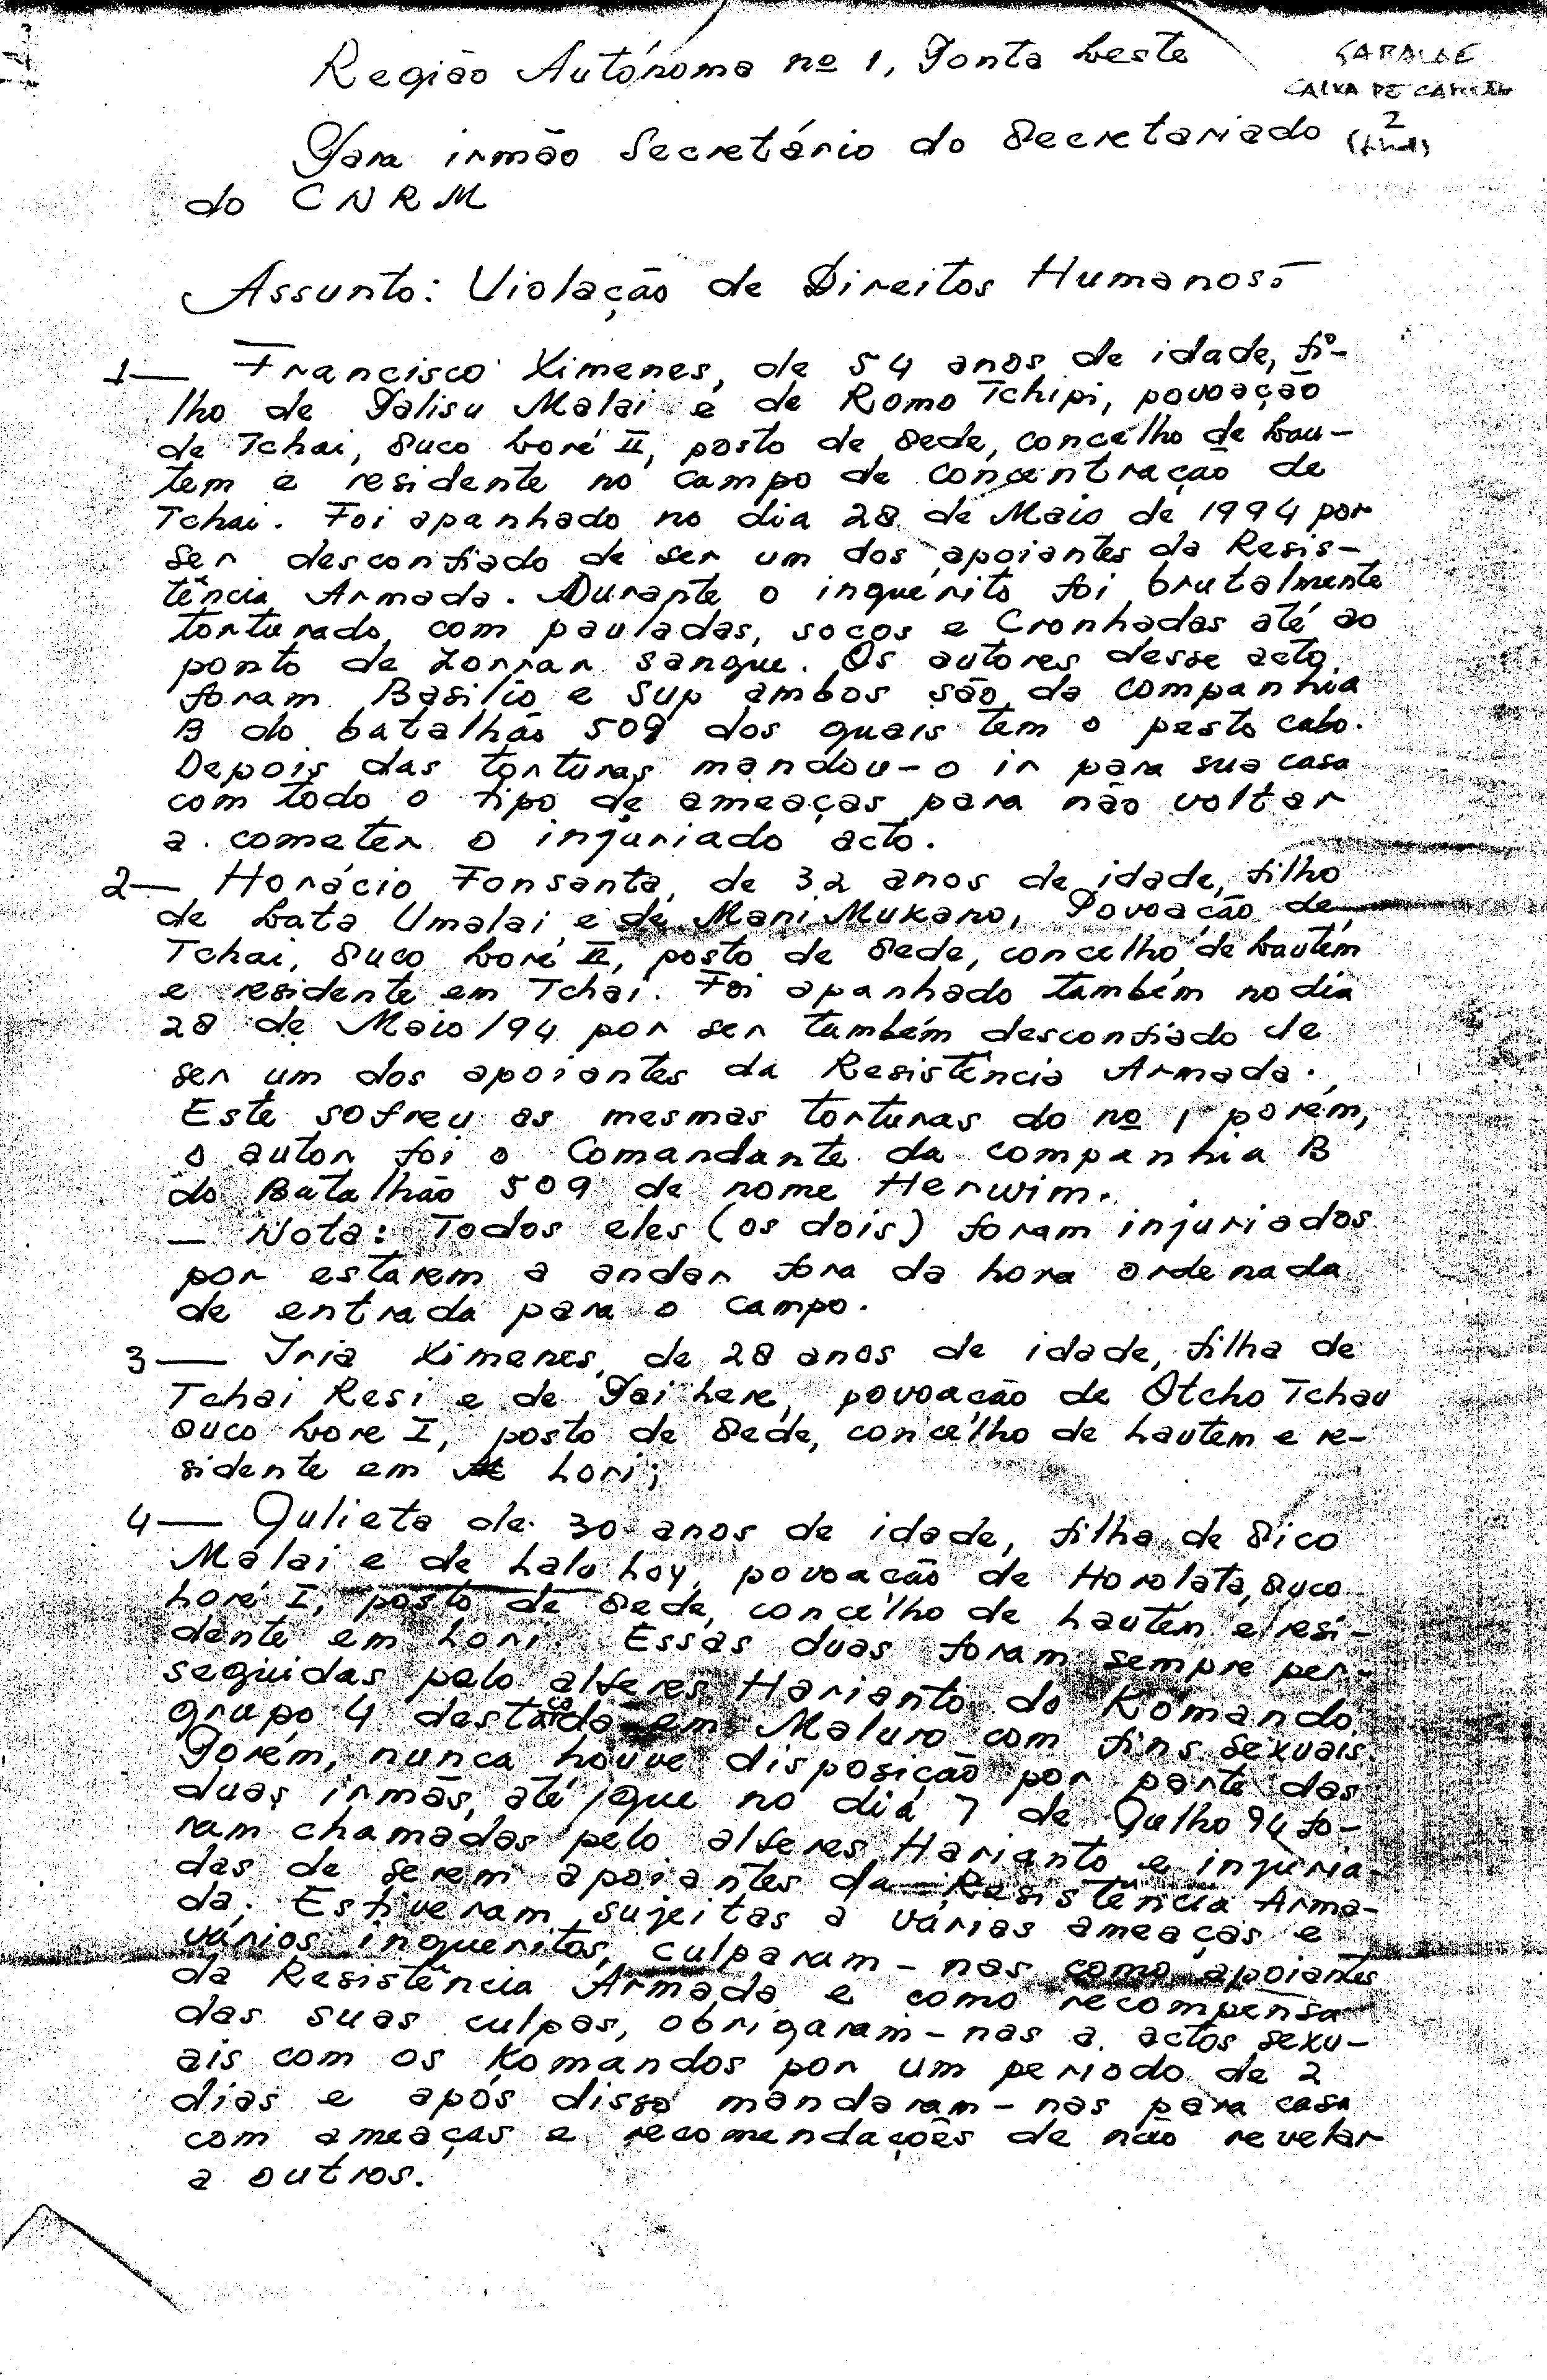 Região Autónoma nº 1, Ponta Leste
SABALAE
CAIXA DE CARTÃO
2
Para irmão Secretário do Secretariado
do CNRM
Assunto: Violação de Direitos Humanos:
1— Francisco Ximenes, de 54 anos de idade, fi-
lho de Palisu Malai e de Romo Tchipi, povoação
de Tchai, Suco Loré II, posto de Sede, concelho de Lau-
tem e residente no campo de concentração de
Tchai. Foi apanhado no dia 28 de Maio de 1994 por
ser desconfiado de ser um dos apoiantes da Resis-
tência Armada. Durante o inquérito foi brutalmente
torturado, com pauladas, socos e Cronhadas até ao
ponto de Zorrar sangue. Os autores desse acto,
foram Basilio e Sup ambos são da companhia
B do batalhão 509 dos quais tem o posto cabo.
Depois das torturas mandou-o ir para sua casa
com todo o tipo de ameaças para não voltar
a cometer o injuriado acto.
2— Horácio Fonsanta, de 32 anos de idade, filho
de Lata Umalai e de Mani Mukano, Povoação de
Tchai, Suco Loré II, posto de Sede, concelho de Lautém
e residente em Tchai. Foi apanhado também no dia
28 de Maio/94 por ser também desconfiado de
ser um dos apoiantes da Resistência Armada.
Este sofreu as mesmas torturas do nº 1 porém,
o autor foi o Comandante da companhia B
do Batalhão 509 de nome Herwim.
— Nota: Todos eles (os dois) foram injuriados
por estarem a andar fora da hora ordenada
de entrada para o campo.
3— Iria Ximenes, de 28 anos de idade, filha de
Tchai Resi e de Pai here, povoacão de Otcho Tchau
Suco Lore I, posto de Sede, concelho de Lautem e re-
sidente em Lori;
4— Julieta de 30 anos de idade, filha de Sico
Malai e de Lalu hoy, povoacão de Horolata, Suco
Loré I, posto de Sede, concelho de Lautem e resi-
dente em Lori. Essas duas foram sempre per-
seguidas pelo alferes Harianto do Komando
grupo 4 destacado em Maluro com fins sexuais.
Porém, nunca houve disposição por parte das
duas irmãs, até que no dia 7 de Julho 94 fo-
ram chamadas pelo alferes Harianto e injuria-
das de serem apoiantes da Resistência Arma-
da. Estiveram sujeitas a várias ameaças e
vários inqueritos, culparam-nas como apoiantes
da Resistência Armada e como recompensa
das suas culpas, obrigaram-nas a actos sexu-
ais com os Komandos por um periodo de 2
dias e após disso mandaram-nas para casa
com ameaças e recomendações de não revelar
a outros.